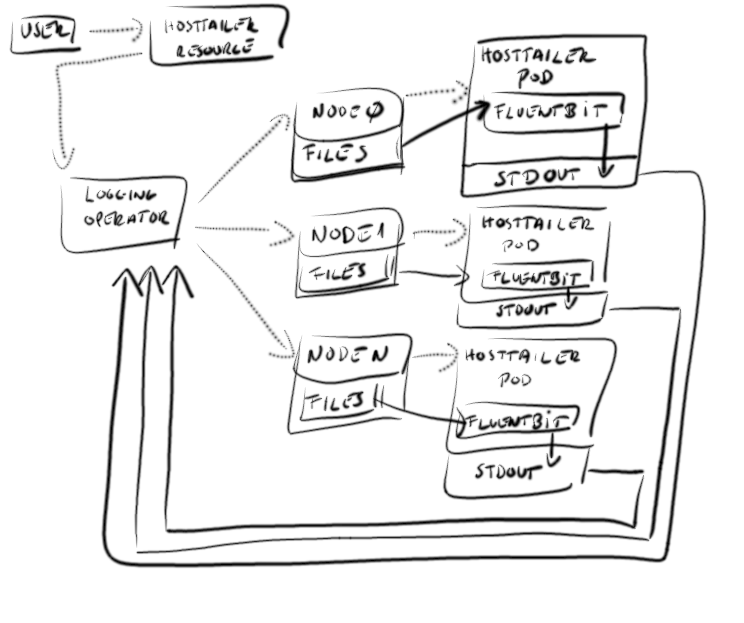 USER
HOSTTAILER
RESOURCE
LOGGING
OPERATOR
NODE0
FILES
HOSTTAILER
POD
FLUENTBIT
STDOUT
NODE1
FILES
HOSTTAILER
POD
FLUENTBIT
STDOUT
NODEN
FILES
HOSTTAILER
POD
FLUENTBIT
STDOUT